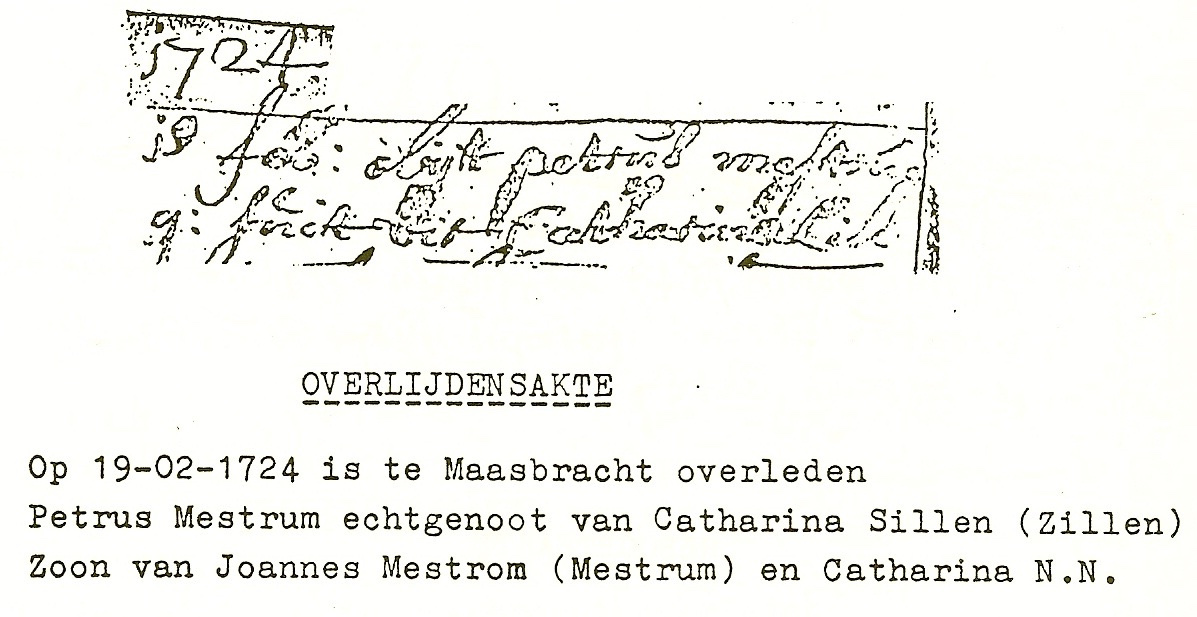 1724
19 feb: obijt petrus mestrū
q: fuit
OVERLIJDENSAKTE
Op 19-02-1724 is te Maasbracht overleden
Petrus Mestrum echtgenoot van Catharina Sillen (Zillen)
Zoon van Joannes Mestrom (Mestrum) en Catharina N.N.